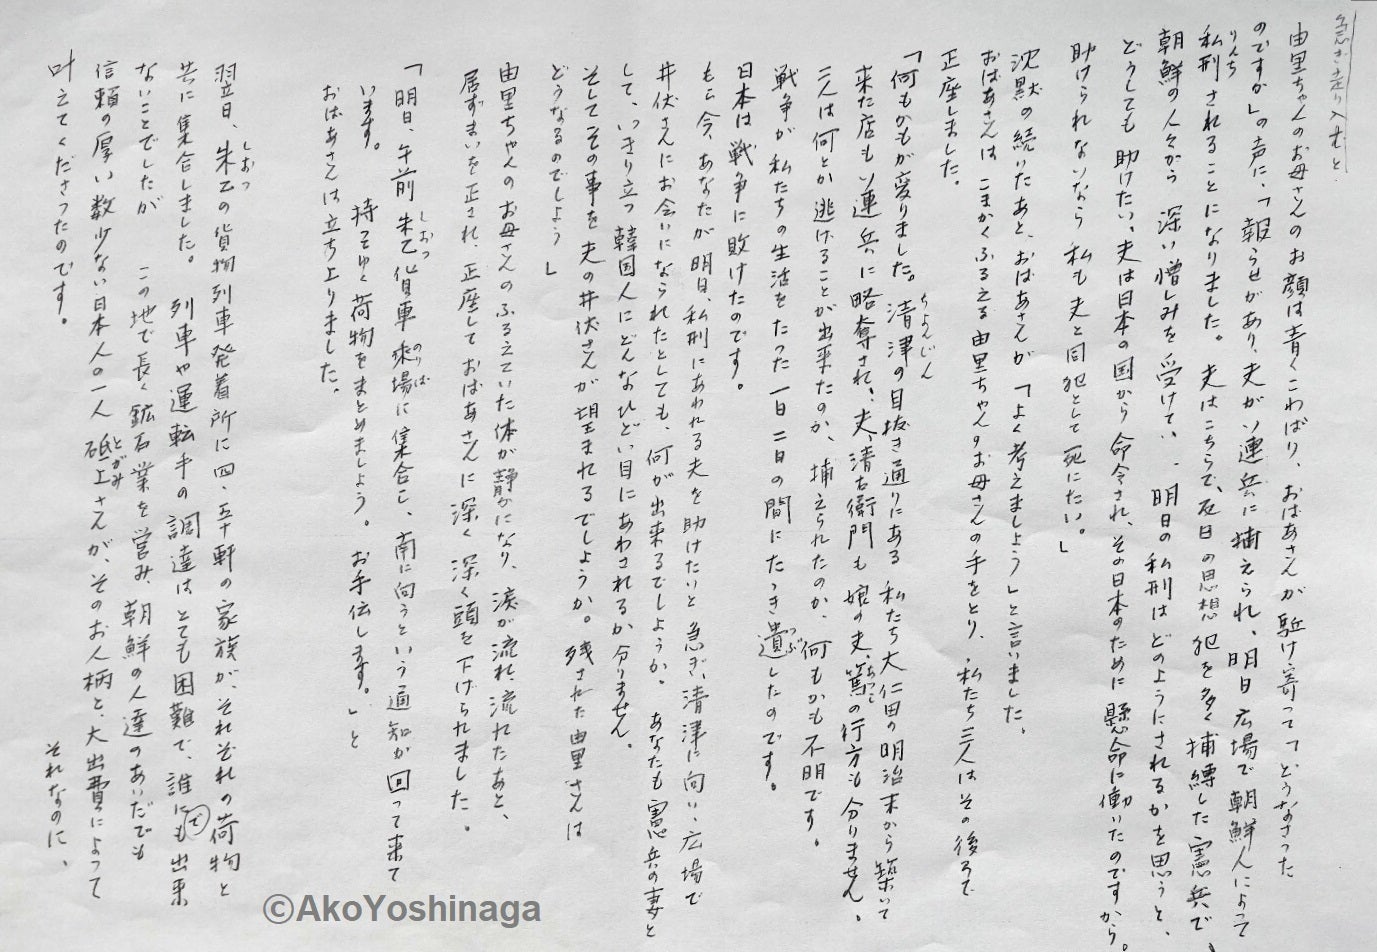 急ぎ走り入むと
由里ちゃんのお母さんのお顔は青くこわばり、おばあさんが駈け寄って「どうなさった
のですか」の声に、「報らせがあり、夫がソ連兵に捕えられ、明日広場で朝鮮人によって
私刑されることになりました。夫はこちらで、反日の思想犯を多く捕縛した憲兵で、
りんち
朝鮮の人々から深い憎しみを受けて、、明日の私刑はどのようにされるかを思うと、
どうしても助けたい。夫は日本の国から命令され、その日本のために懸命に働いたのですから。
助けられないなら私も夫と同犯として死にたい。」
沈黙の続いたあと、おばあさんが「よく考えましょう」と言いました。
おばあさんはこまかくふるえる由里ちゃんのお母さんの手をとり、私たち三人はその後ろで
正座しました。
「何もかもが変りました。清津の目抜き通りにある私たち大仁田の明治末から築いて
ちょんじん
来た店もソ連兵に略奪され、夫、清右衛門も娘の夫、篤の行方も分りません。
あつし
二人は何とか逃げることが出来たのか、捕えられたのか、何もかも不明です。
戦争が私たちの生活をたった一日二日の間にたゝき遺したのです。
つぶ
日本は戦争に敗けたのです。
もし今、あなたが明日、私刑にあわれる夫を助けたいと急ぎ、清津に向い、広場で
井伏さんにお会いになられたとしても、何が出来るでしょうか。あなたも憲兵の妻と
して、いきり立つ韓国人にどんなひどい目にあわされるか分りません。
そしてその事を夫の井伏さんが望まれるでしょうか。残された由里さんは
どうなるのでしょう」
由里ちゃんのお母さんのふるえていた体が静かになり、涙が流れ、流れたあと、
居ずまいを正され、正座しておばあさんに深く深く頭を下げられました。
「明日、午前朱乙貨車乗場に集合し、南に向うという通知が回って来て
しおつ
のりば
います。持てゆく荷物をまとめましょう。お手伝します。」と
おばあさんは立ち上りました。
翌日、朱乙の貨物列車発着所に四、五十軒の家族が、それぞれの荷物と
しおつ
共に集合しました。列車や運転手の調達はとても困難で、誰にも出来
で
ないことでしたがこの地で長く鉱石業を営み、朝鮮の人達のあいだでも
信頼の厚い数少ない日本人の一人砥上さんが、そのお人柄と、大出費によって
とがみ
叶えてくださったのです。
それなのに、
©AkoYoshinaga